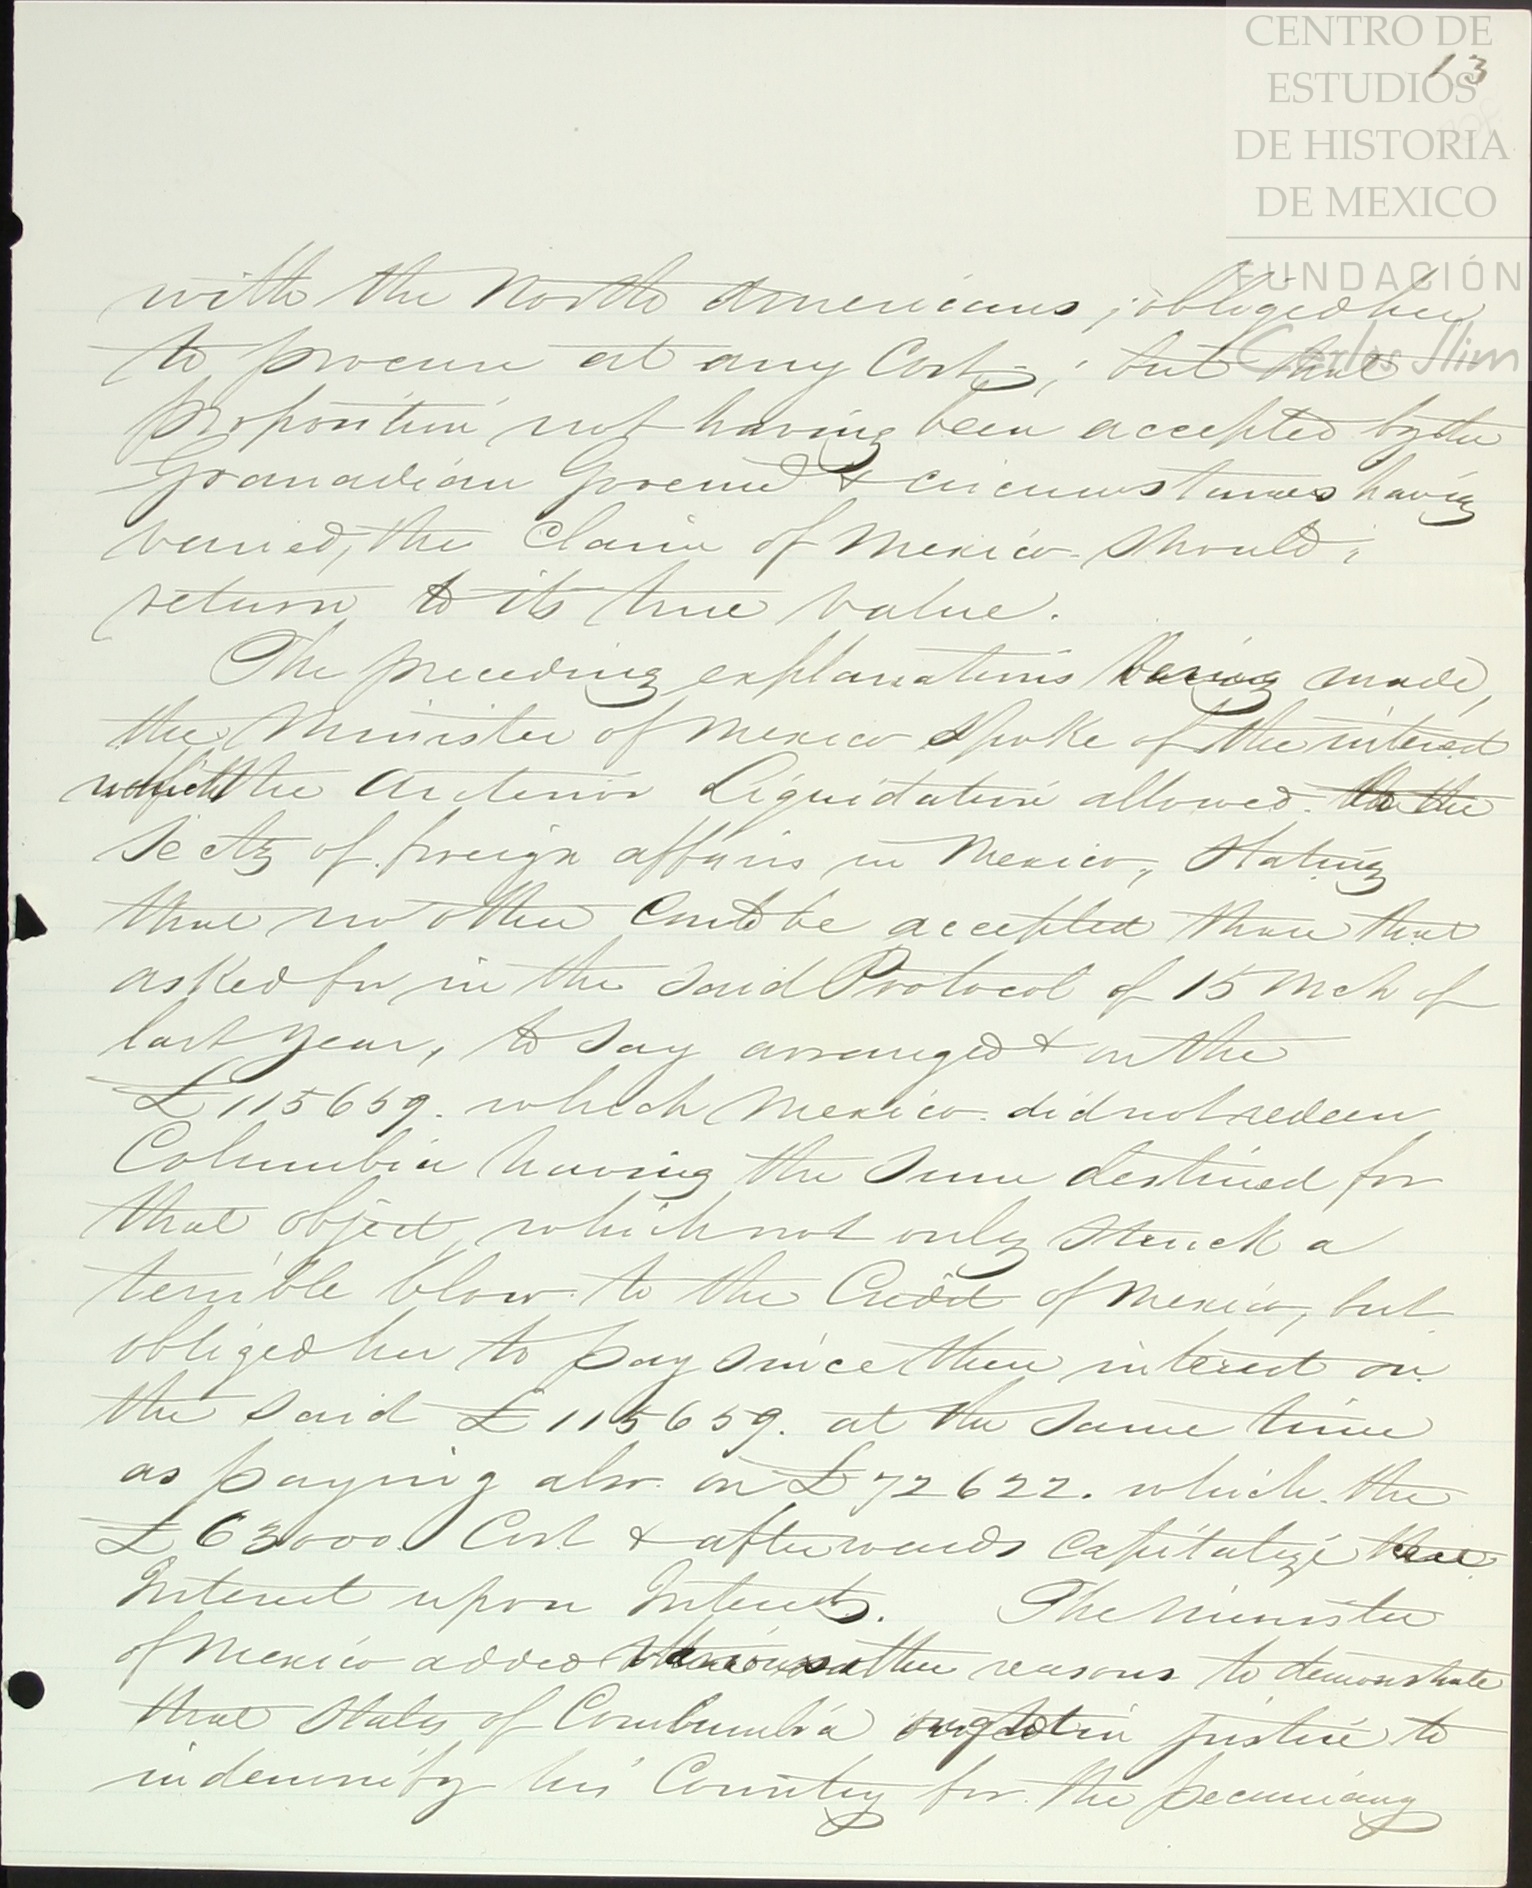 CENTRO DE
ESTUDIOS
DE HISTORIA
DE MEXICO
FUNDACIÓN
Carlos Slim
13
with the North Americans, obliged her
to procure at any Cost; but that
proposition not having been accepted by the
Granadian Governd & circumstances having
varied, the Claim of Mexico should,
return to its true value.
The preceding explanations being made,
the Minister of Mexico spoke of the interest
which the anterior Liquidation allowed to the
Secty of foreign affairs in Mexico, stating
that no other Could be accepted than that
asked for in the said Protocol of 15 Mch of
last year, to say arranged & on the
£115659. which Mexico did not redeem
Columbia having the sum destined for
that object, which not only struck a
terrible blow to the Credit of Mexico, but
obliged her to pay since then interest on
the said £115659. at the same time
as paying also on £72622. which the
£63000 Cost & afterwards capitalize
Interest upon Interests. The Minister
of Mexico added other reasons to demonstrate
that States of Columbia ought in justice to
indemnify his Country for the pecuniary